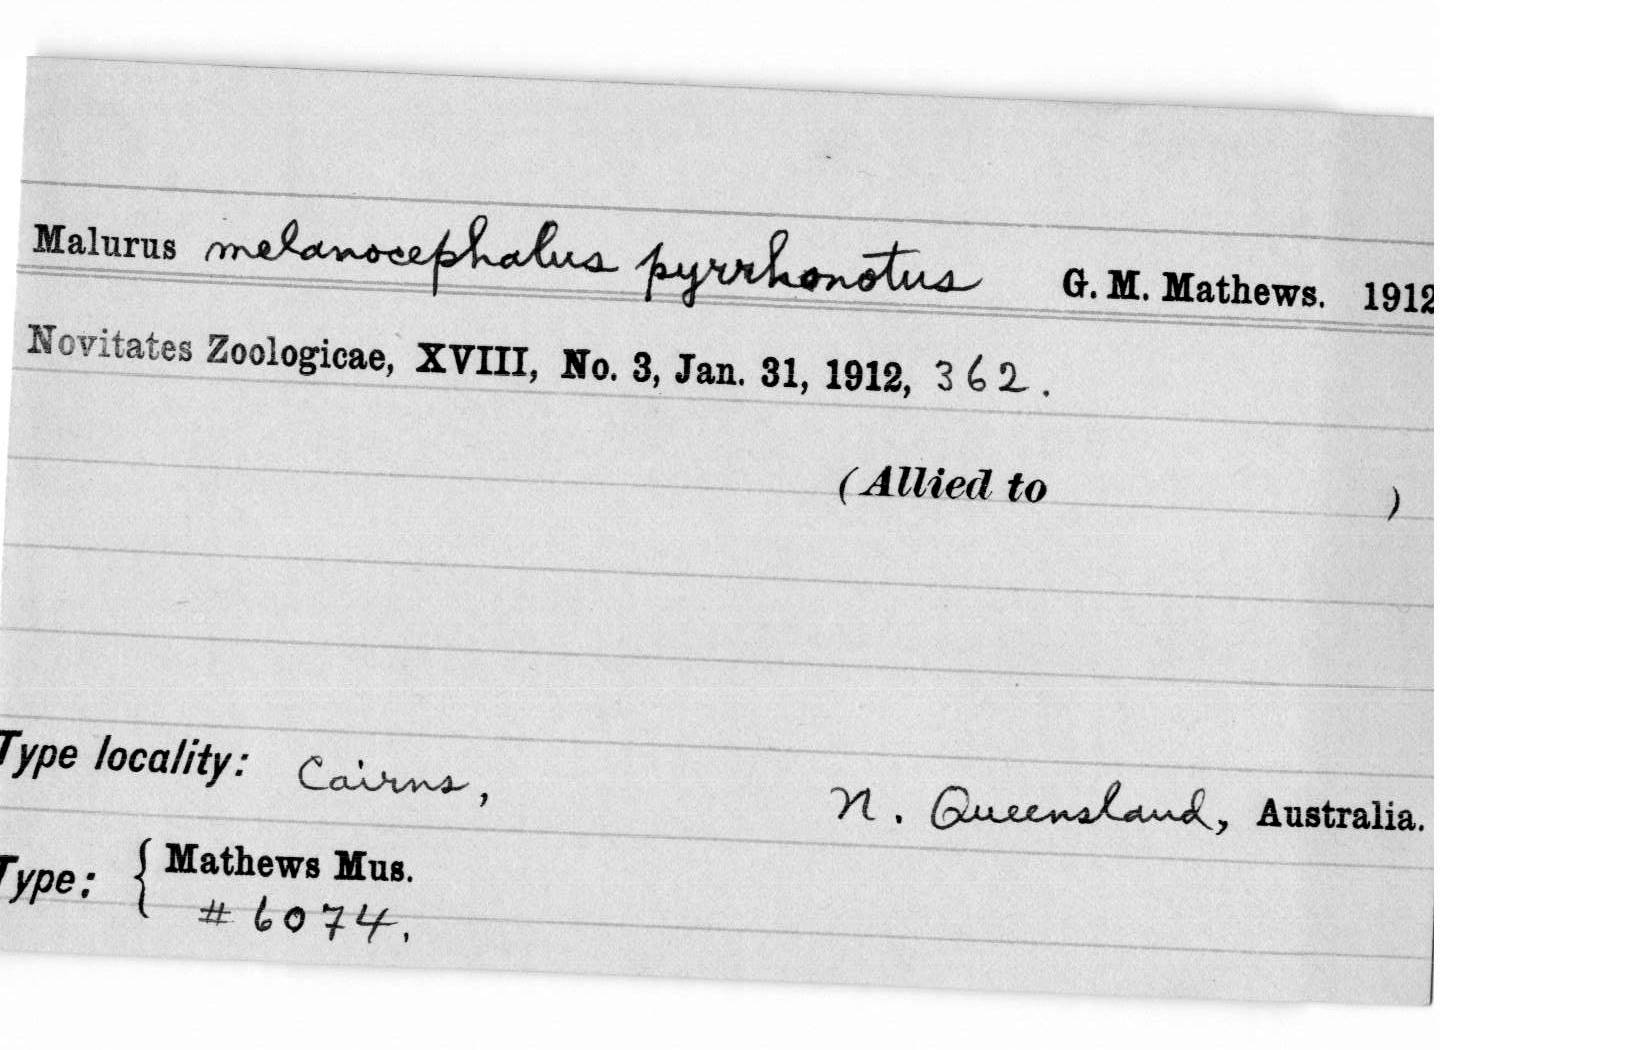 Malurus melanocephalus pyrrhonotus G. M. Mathews. 1912
Novitates Zoologicae, XVIII, No. 3, Jan. 31, 1912, 362.
(Allied to )
Type locality: Cairns, N. Queensland, Australia.
Type: { Mathews Mus.
# 6074.